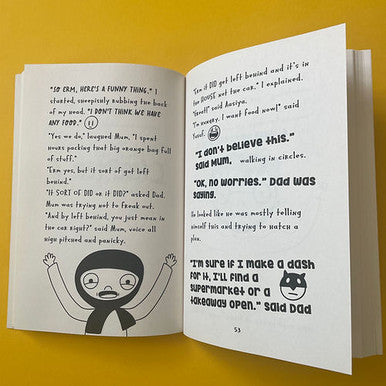 "SO ERM, HERE'S A FUNNY THING," I
started, sheepishly rubbing the back
of my head. "I DON'T THINK WE HAVE
ANY FOOD."
"Yes we do," laughed Mum, "I spent
hours packing that big orange bag full
of stuff."
"Erm yes, but it sort of got left
behind."
"IT SORT OF DID or it DID?" asked Dad.
Mum was trying not to freak out.
"And by left behind, you just mean in
the car right?" said Mum, voice all
high pitched and panicky.
"Erm it DID get left behind and it's in
the HOUSE not the car," I explained.
said Aasiya.
"I'm hungry, I want food now!" said
Yusuf.
"I don't believe this,"
said Mum, walking in circles.
"OK, no worries." Dad was
saying.
He looked like he was mostly telling
himself this and trying to hatch a
plan.
"I'm sure if I make a dash
for it, I'll find a
supermarket or a
takeaway open." Said Dad
53